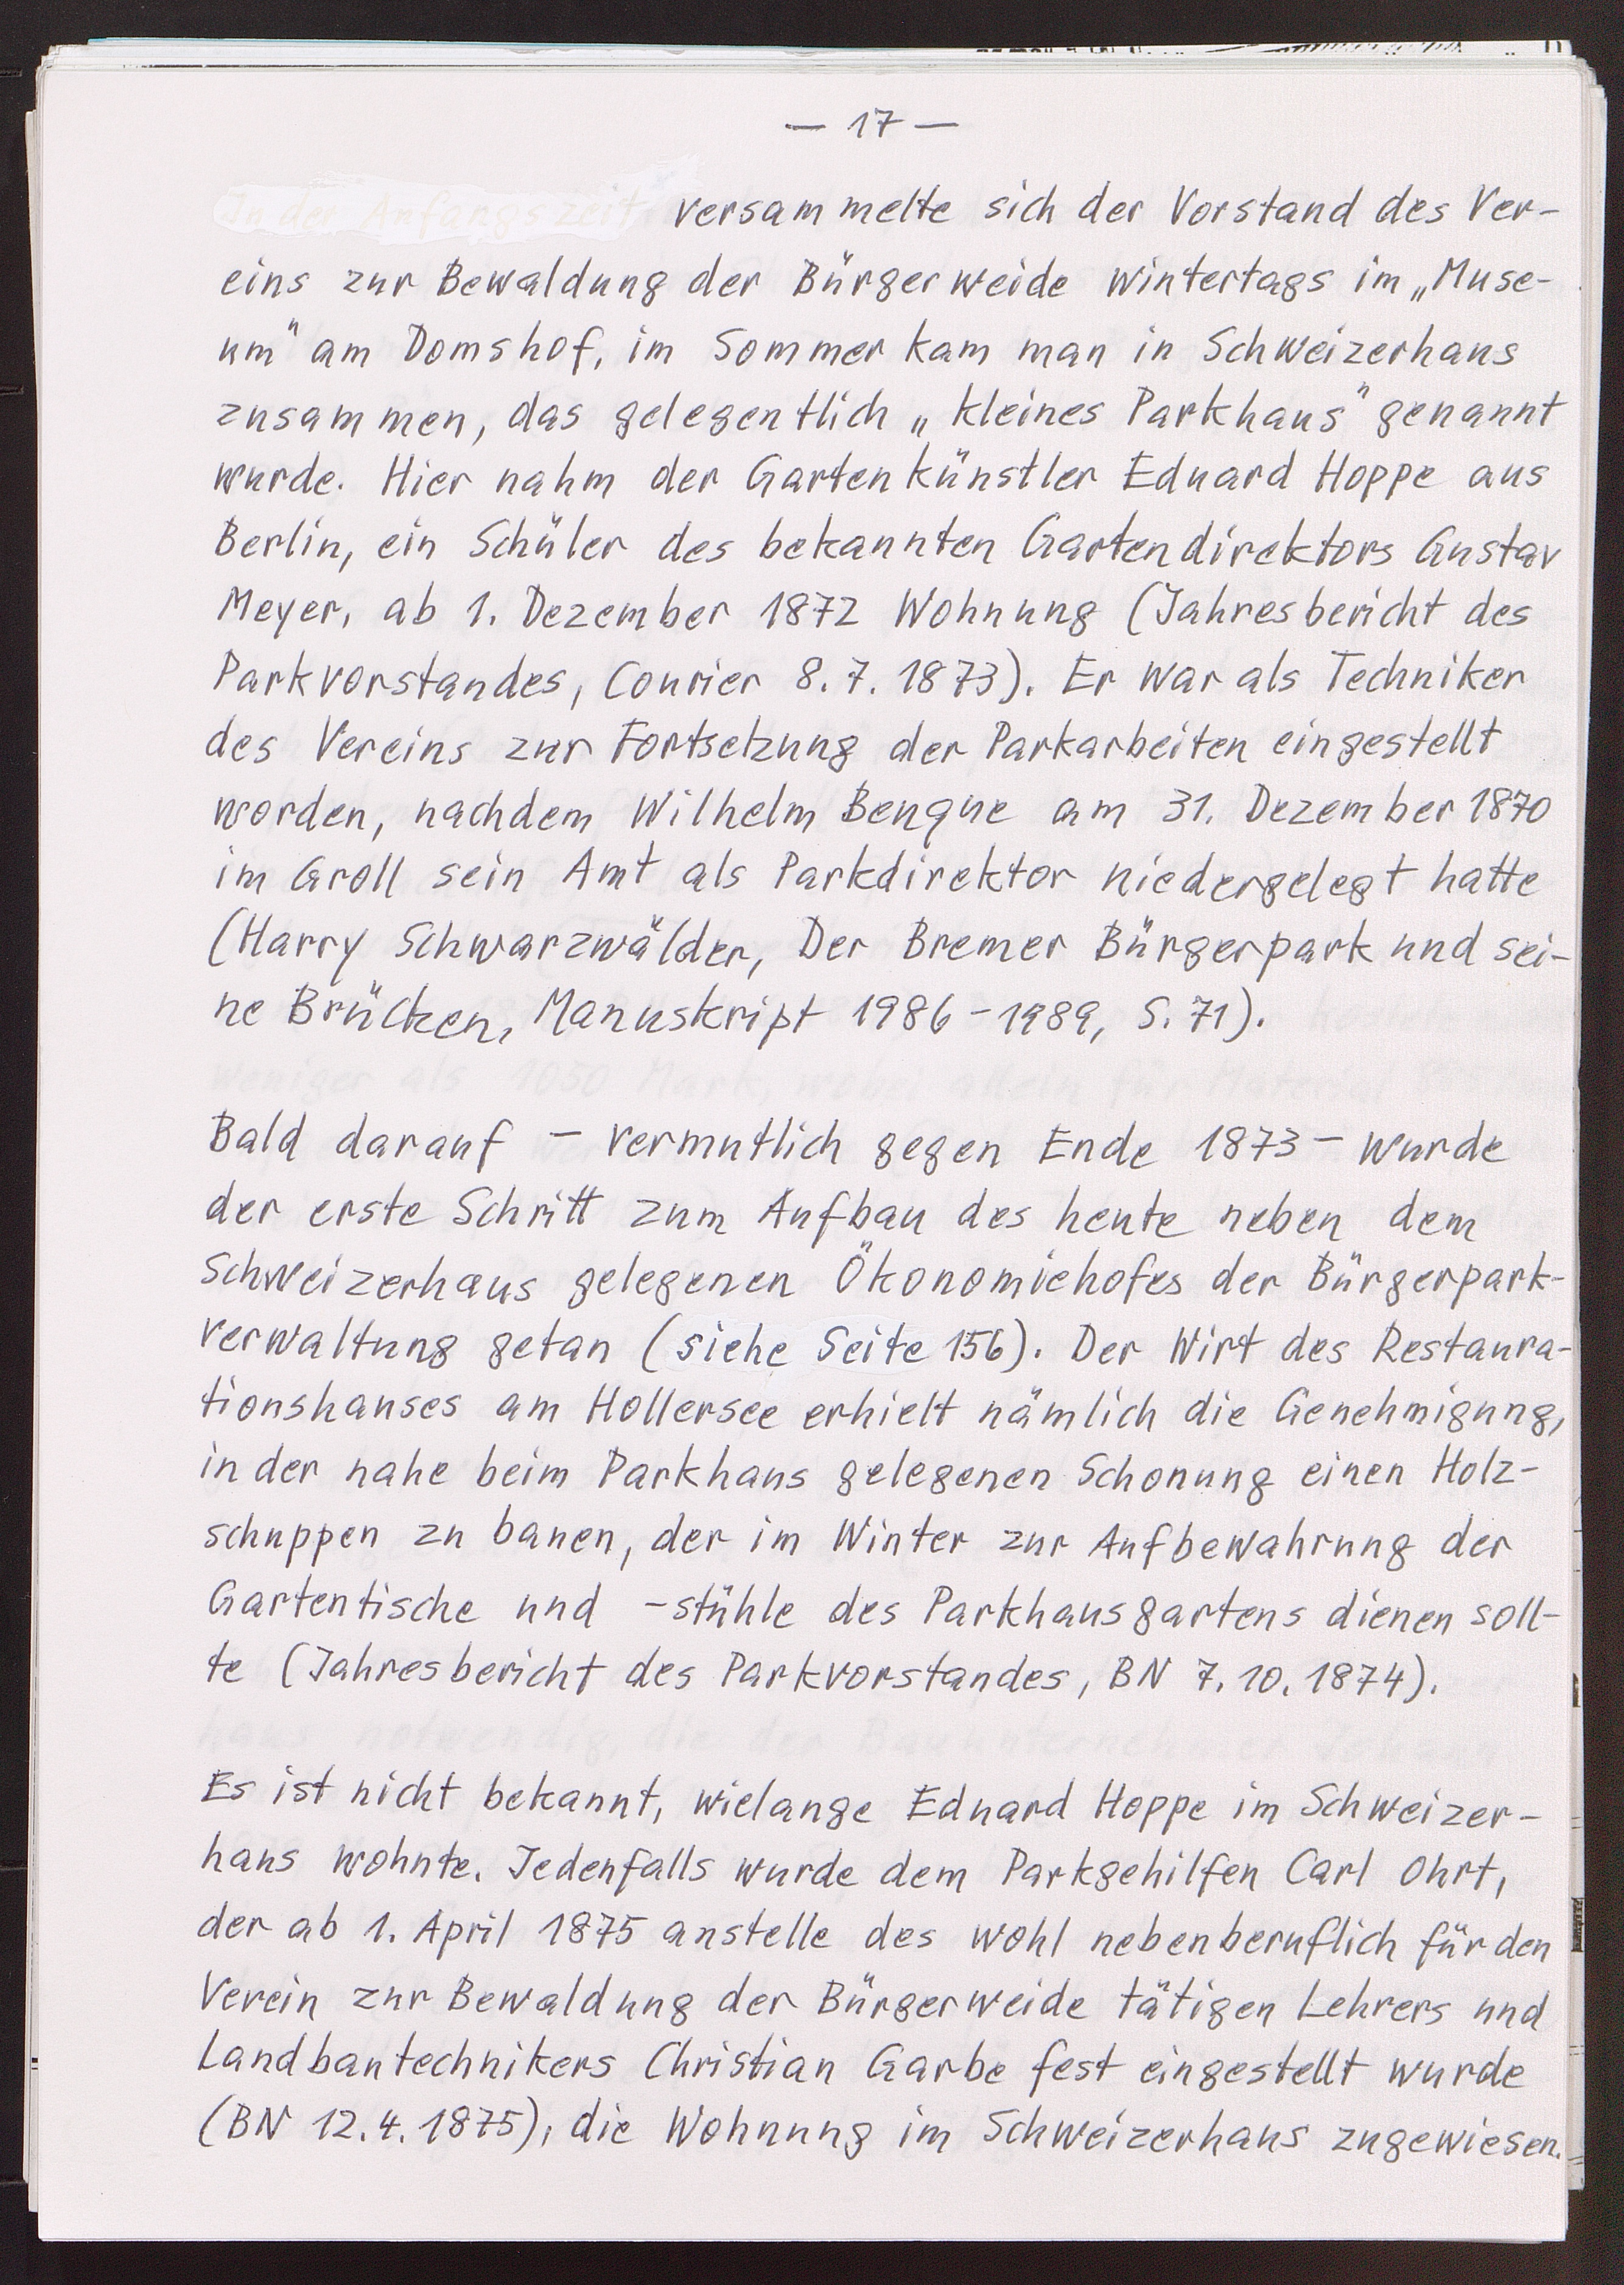 — 17 —
In der Anfangszeit versammelte sich der Vorstand des Ver-
eins zur Bewaldung der Bürgerweide wintertags im „Muse-
um" am Domshof, im Sommer kam man in Schweizerhaus
zusammen, das gelegentlich „kleines Parkhaus" genannt
wurde. Hier nahm der Gartenkünstler Eduard Hoppe aus
Berlin, ein Schüler des bekannten Gartendirektors Gustav
Meyer, ab 1. Dezember 1872 Wohnung (Jahresbericht des
Parkvorstandes, Courier 8.7.1873). Er war als Techniker
des Vereins zur Fortsetzung der Parkarbeiten eingestellt
worden, nachdem Wilhelm Benque am 31. Dezember 1870
im Groll sein Amt als Parkdirektor niedergelegt hatte
(Harry Schwarzwälder, Der Bremer Bürgerpark und sei-
ne Brücken, Manuskript 1986-1989, S. 71).
Bald darauf - vermutlich gegen Ende 1873 - wurde
der erste Schritt zum Aufbau des heute neben dem
Schweizerhaus gelegenen Ökonomiehofes der Bürgerpark-
verwaltung getan (siehe Seite 156). Der Wirt des Restaura-
tionshauses am Hollersee erhielt nämlich die Genehmigung,
in der nahe beim Parkhaus gelegenen Schonung einen Holz-
schuppen zu bauen, der im Winter zur Aufbewahrung der
Gartentische und -stühle des Parkhausgartens dienen soll-
te (Jahresbericht des Parkvorstandes, BN 7.10.1874).
Es ist nicht bekannt, wielange Eduard Hoppe im Schweizer-
haus wohnte. Jedenfalls wurde dem Parkgehilfen Carl Ohrt,
der ab 1. April 1875 anstelle des wohl nebenberuflich für den
Verein zur Bewaldung der Bürgerweide tätigen Lehrers und
Landbautechnikers Christian Garbe fest eingestellt wurde
(BN 12.4.1875), die Wohnung im Schweizerhaus zugewiesen.